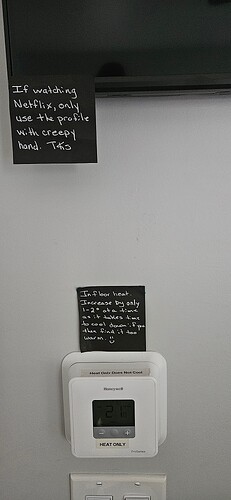 If watching
Netflix, only
use the profile
with creepy
hand. Tks
In floor heat.
Increase by only
1-2° at a time
as it takes time
to cool down if you
then find it too
warm. :)
Heat Only Does Not Cool
Honeywell
21
HEAT ONLY